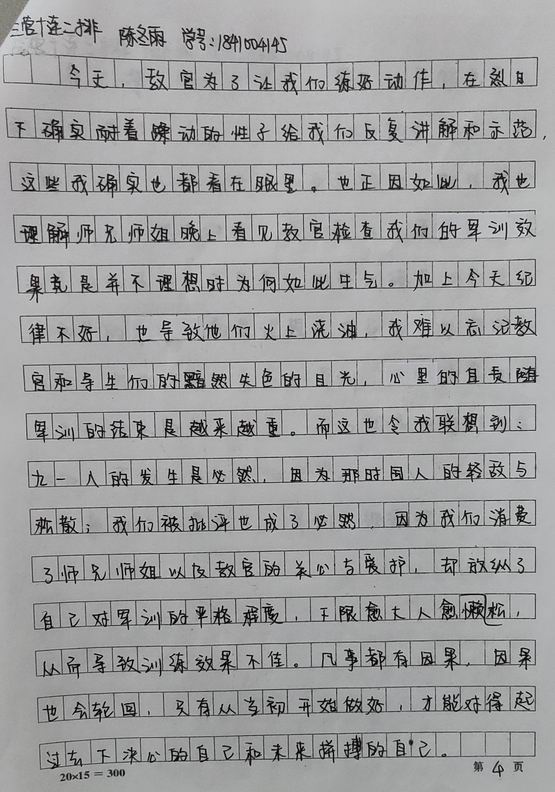 三营十连二排 陈冬雨 学号:1841004145
今天,教官为了让我们练好动作,在烈日
下确实耐着躁动的性子给我们反复讲解和示范,
这些我确实也都看在眼里。也正因如此,我也
理解师兄师姐晚上看见教官检查我们的军训效
果竟是并不理想时为何如此生气。加上今天纪
律不好,也导致他们火上浇油,我难以忘记教
官和导生们的黯然失色的目光,心里的自责随
军训的结束是越来越重。而这也令我联想到:
九一人的发生是必然,因为那时国人的轻敌与
松散;我们被批评也成了必然,因为我们消费
了师兄师姐以及教官的关心与爱护,却放纵了
自己对军训的严格程度,下限愈大人愈懒松,
从而导致训练效果不佳。凡事都有因果,因果
也会轮回,只有从当初开始做好,才能对得起
过去下决心的自己和未来拼搏的自己。
20×15=300
第 4 页